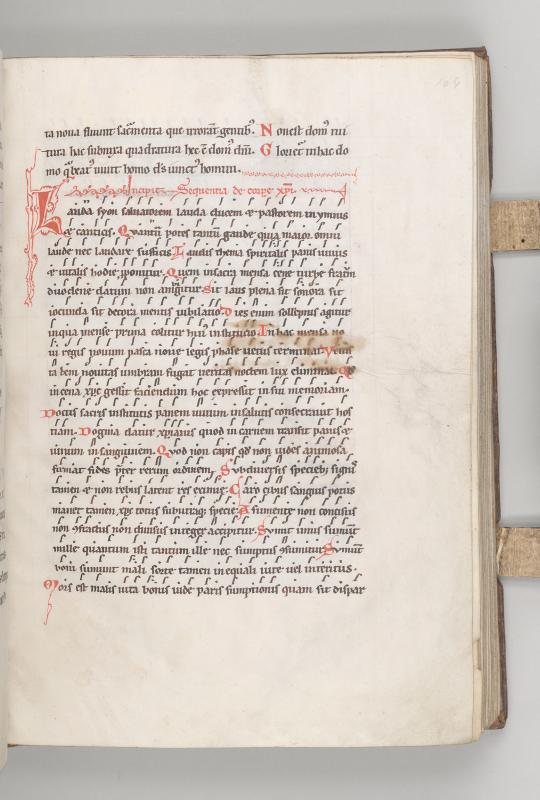 ta noua fiunt sac̄menta que
Nonest dom'
tura hac subnixa quadratura hec ē dom' dn̄i. Glorietinhac do
mo uiuit homo homini.
Incipit Sequentia de corpe xp̄i.
Lauda syon saluatorem lauda ducem & pastorem inymnis
& canticis. Quantū potes tantū gaude quia maior omni
laude nec laudare sufficis. Laudis thema spiritalis panis uiuus
& uitalis hodie proponitur. Quem insacra mensa cene turbe fratrū
duodene datum non ambigitur. Sit laus plena sit sonora sit
iocunda sit decora mentis iubilatio. Dies enim sollēpnis agitur
inqua mense prima colitur hui' institucio. Inhac mensa no
ui regis nouum pasca noue legis phase uetus terminat. Vetus
ta tem nouitas umbram fugat ueritas noctem lux eliminat. Qd
incena xp̄c gessit faciendum hoc expressit in sui memoriam.
Docti sacris institutis panem uinum insalutis consecrant hos
tiam. Dogma datur xp̄ianis quod in carnem transit panis &
uinum insanguinem. Quod non capis qd non uides animosa
firmat fides preter rerum ordinem. Sub diuersis speciebȝ signis
tamen & non rebus latent res eximie. Caro cibus sanguis potus
manet tamen xp̄c totus sub utraqȝ specie. A sumente non concisus
non 9fractus non diuisus integer accipitur. Sumit unus sumunt
mille quantum isti tantum ille nec sumptus 9sumitur. Sumunt
boni sumunt mali sorte tamen inequali uite uel interitus.
Mors est malis uita bonis uide paris sumptionis quam sit dispar